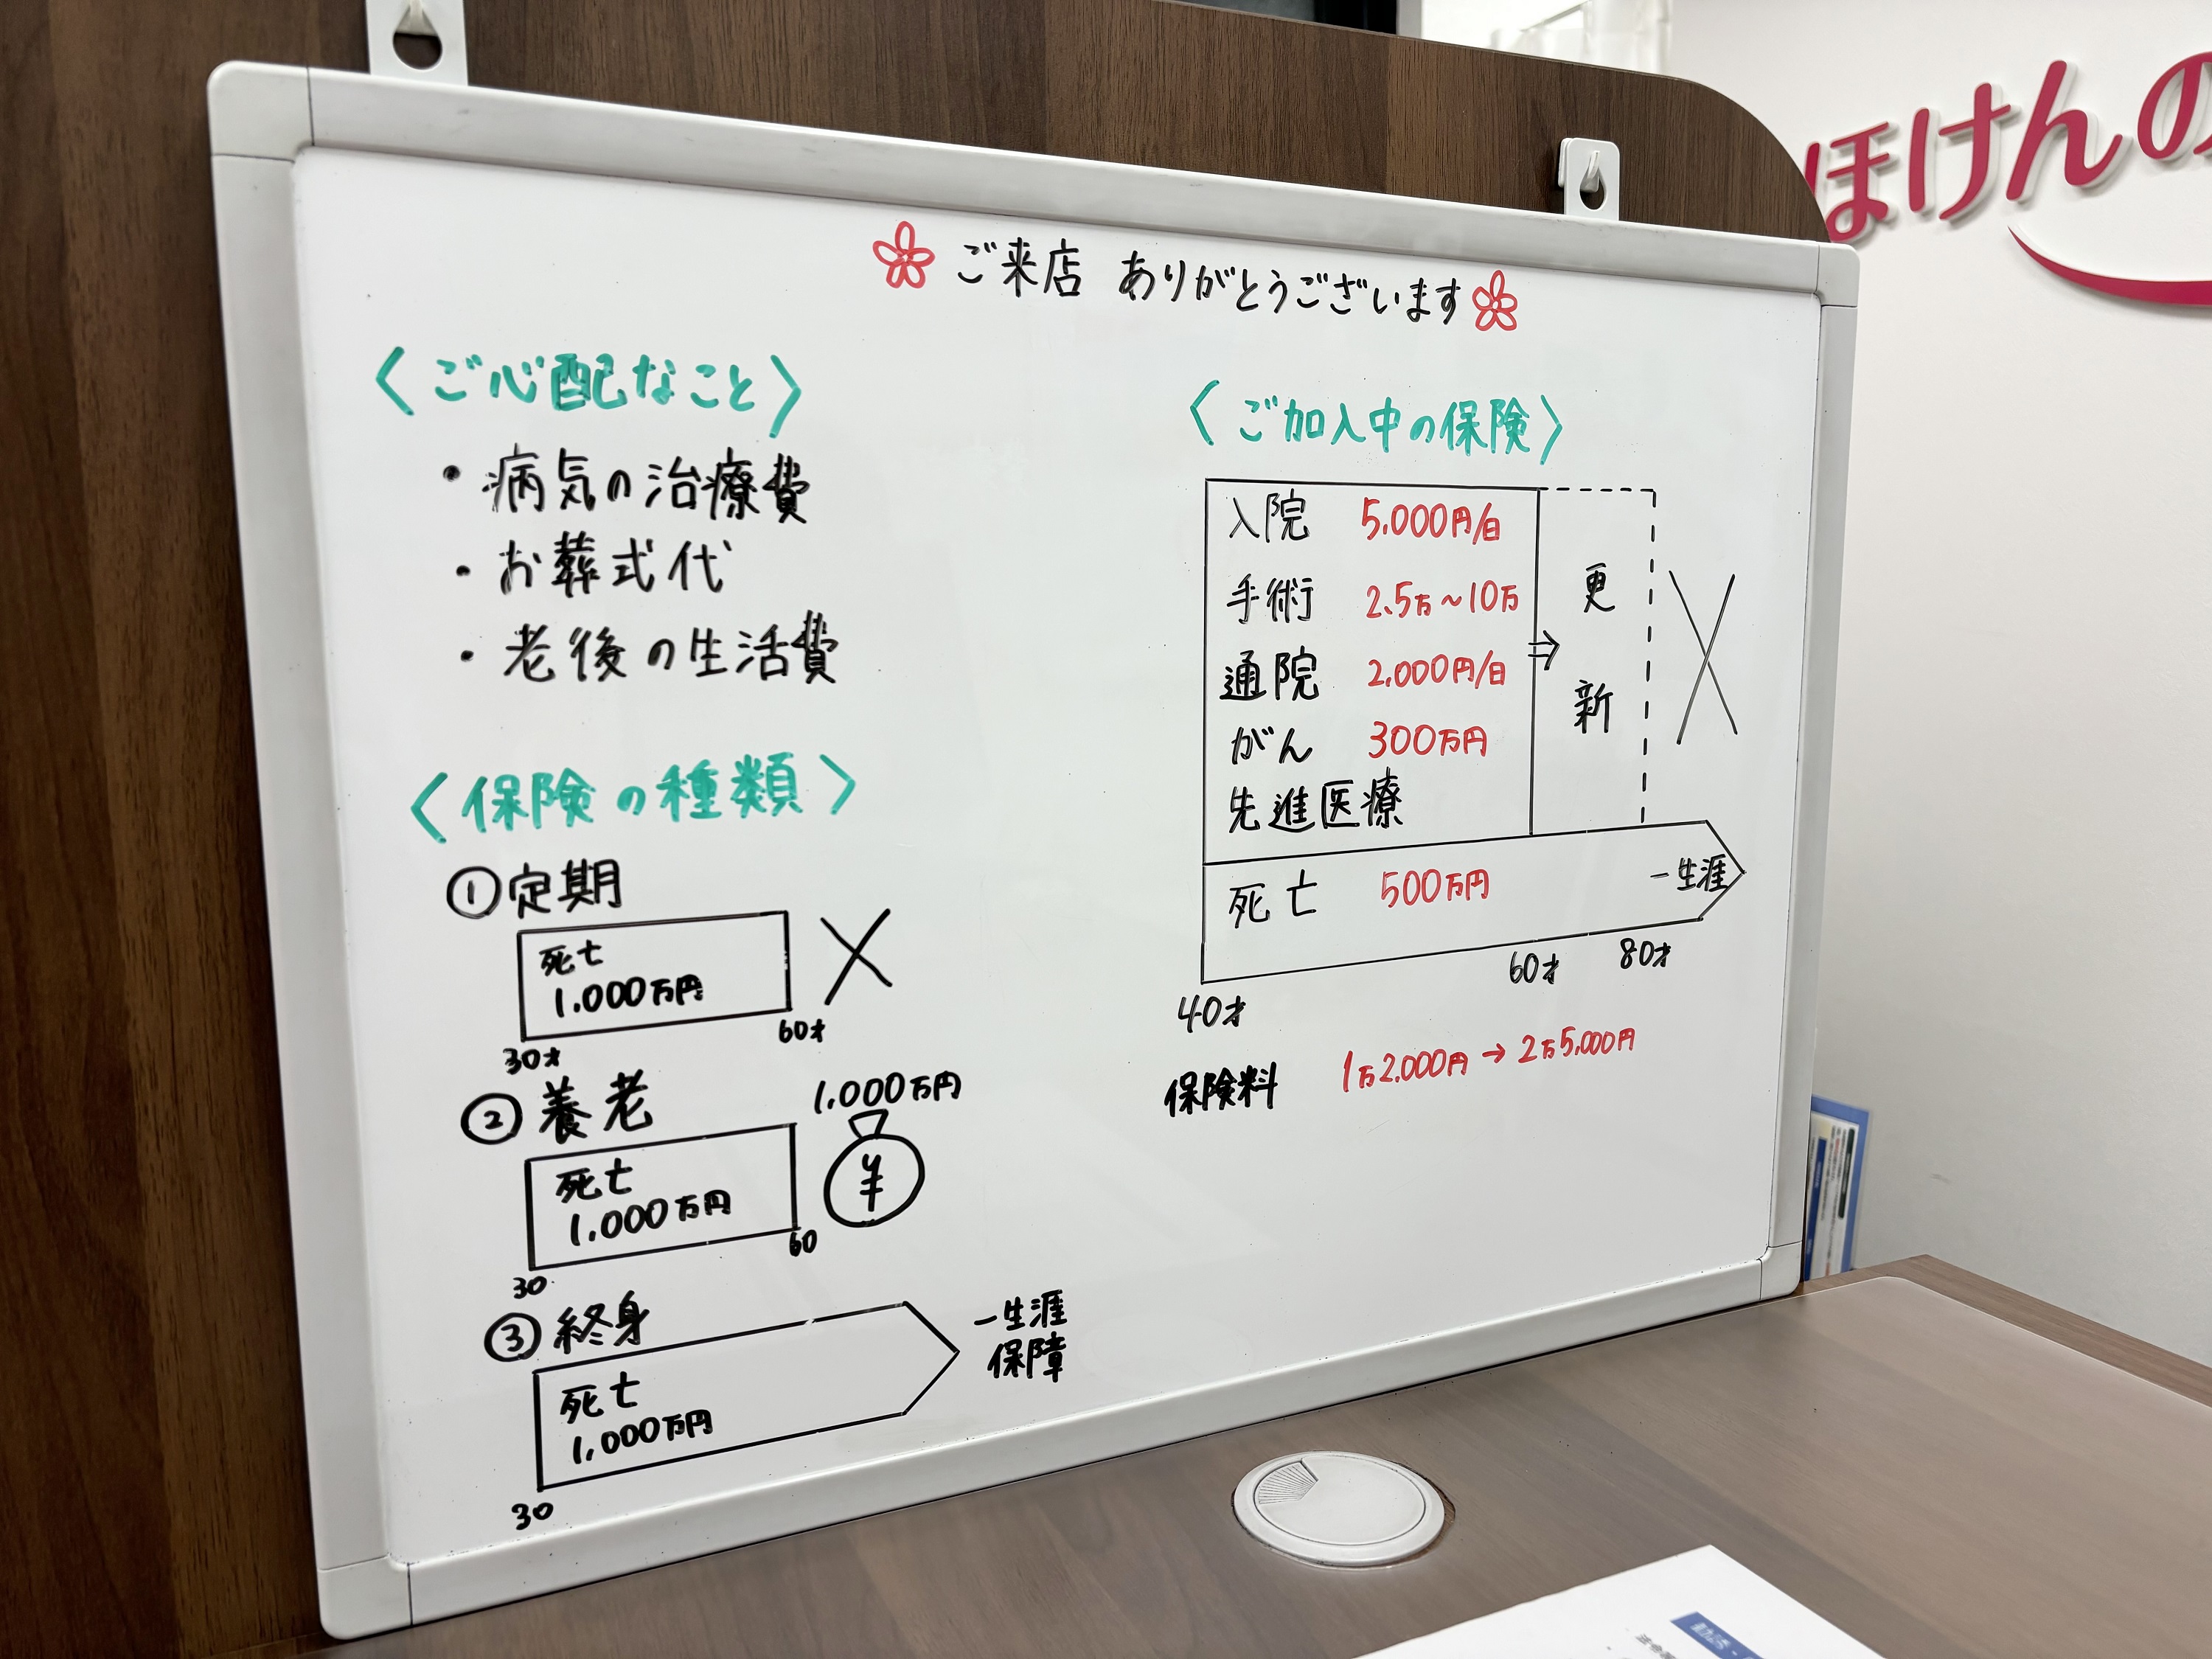 ほけんの
ご来店 ありがとうございます
〈ご心配なこと〉
・病気の治療費
・お葬式代
・老後の生活費
〈保険の種類〉
①定期
死亡
1,000万円
30才
60才
②養老
1,000万円
¥
死亡
1,000万円
30
60
③終身
死亡
1,000万円
30
一生涯
保障
〈ご加入中の保険〉
入院 5,000円/日
手術 2.5万~10万
通院 2,000円/日
がん 300万円
先進医療
⇒
更新
死亡 500万円
一生涯
40才
60才
80才
保険料 1万2,000円→2万5,000円